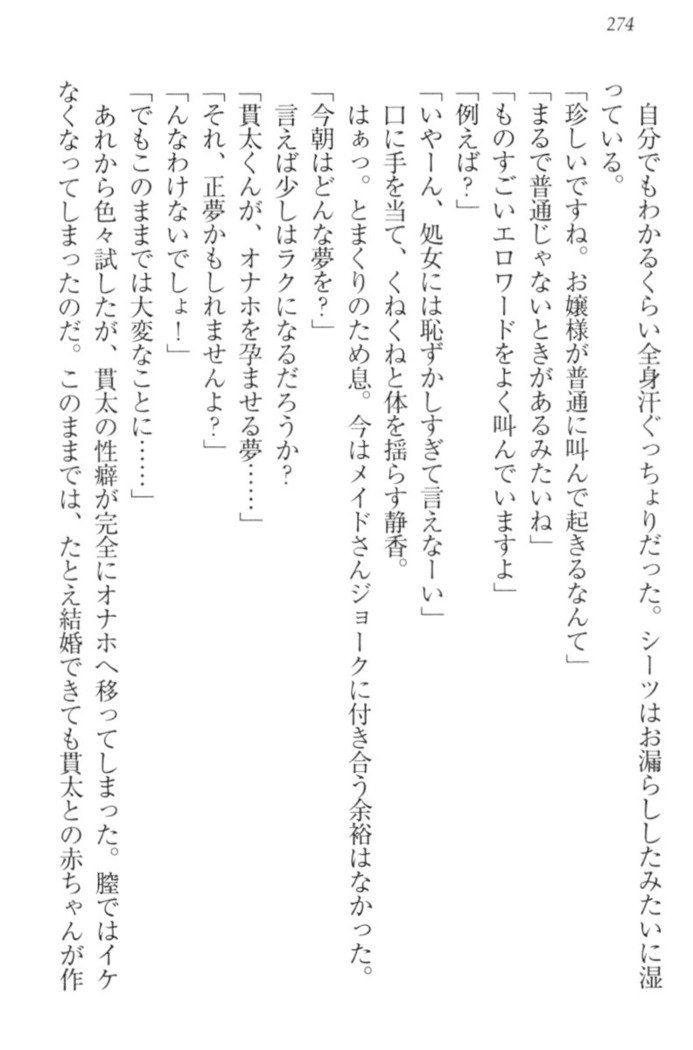 274
自分でもわかるくらい全身汗ぐっちょりだった。シーツはお漏らししたみたいに湿
っている。
「珍しいですね。お嬢様が普通に叫んで起きるなんて」
「まるで普通じゃないときがあるみたいね」
「ものすごいエロワードをよく叫んでいますよ」
「例えば?」
「いやーん、処女には恥ずかしすぎて言えなーい」
口に手を当て、くねくねと体を揺らす静香。
はぁっ。とまくりのため息。今はメイドさんジョークに付き合う余裕はなかった。
「今朝はどんな夢を?」
言えば少しはラクになるだろうか?
「貫太くんが、オナホを孕ませる夢……」
「それ、正夢かもしれませんよ?」
「んなわけないでしょ!」
「でもこのままでは大変なことに……」
あれから色々試したが、貫太の性癖が完全にオナホへ移ってしまった。膣ではイケ
なくなってしまったのだ。このままでは、たとえ結婚できても貫太との赤ちゃんが作